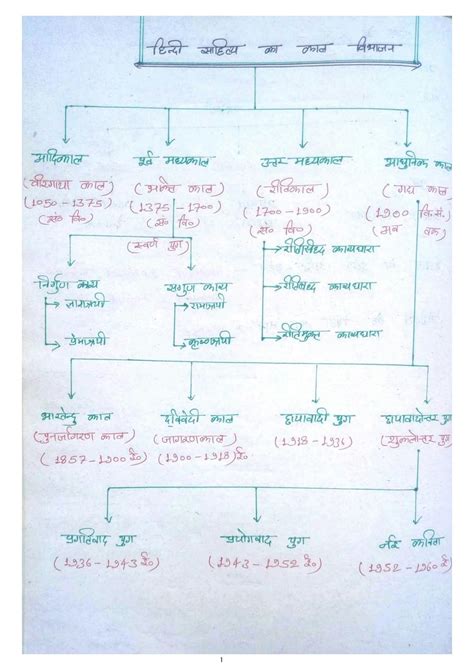 हिन्दी साहित्य का काल विभाजन
आदिकाल पूर्व मध्यकाल उत्तर मध्यकाल आधुनिक काल
(वीरगाथा काल) (भक्ति काल) (रीतिकाल) (गद्य काल)
(1050 - 1375) (1375 - 1700) (1700 - 1900) (1900 वि.सं.
(सं० वि०) (सं० वि०) (सं० वि०) अब तक)
(स्वर्ण युग)
रीतिसिद्द काव्यधारा
निर्गुण काव्य सगुण काव्य रीतिबिद्द काव्यधारा
ज्ञानाश्रयी रामाश्रयी
प्रेमाश्रयी कृष्णाश्रयी रीतिमुक्त काव्यधारा
भारतेन्दु काल द्विवेदी काल छायावादी युग छायावादोत्तर युग
(पुनर्जागरण काल) (जागरणकाल) (1918 - 1936) (शुक्लोत्तर युग
(1857 - 1900 ई०) (1900 - 1918) ई०
प्रगतिवाद युग प्रयोगवाद युग नई कविता
(1936 - 1943 ई०) (1943 - 1952 ई०) (1952 - 1960 ई०)
1